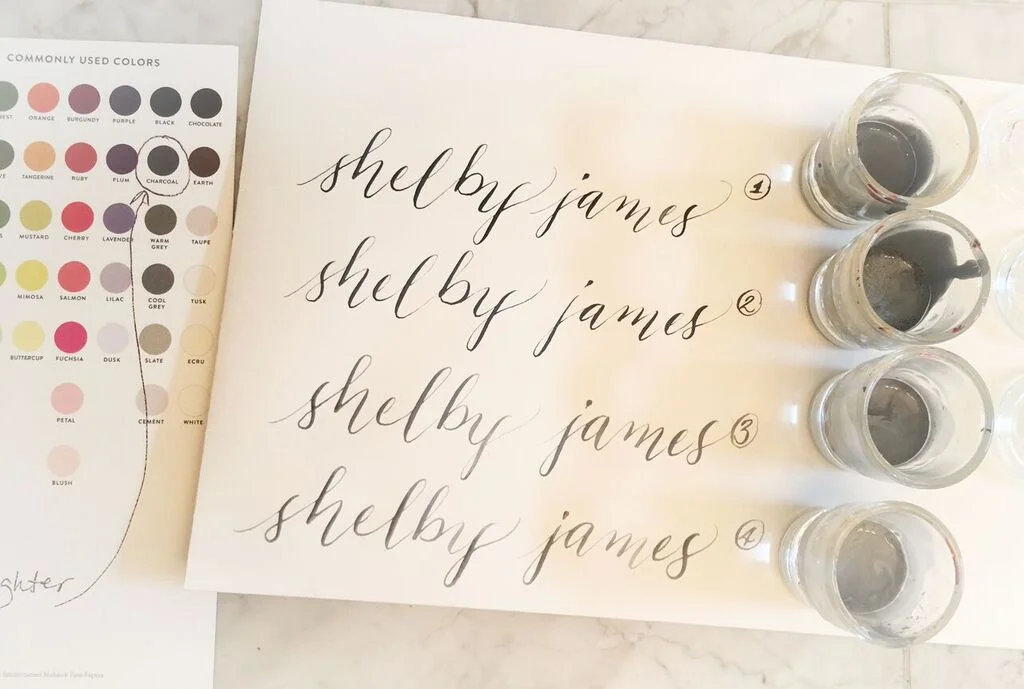 COMMONLY USED COLORS
ORANGE BURGUNDY PURPLE BLACK CHOCOLATE
TANGERINE RUBY PLUM CHARCOAL EARTH
MUSTARD CHERRY LAVENDER WARM GREY TAUPE
MIMOSA SALMON LILAC COOL GREY TUSK
BUTTERCUP FUCHSIA DUSK SLATE ECRU
PETAL CEMENT WHITE
BLUSH
shelby james 1
shelby james 2
shelby james 3
shelby james 4